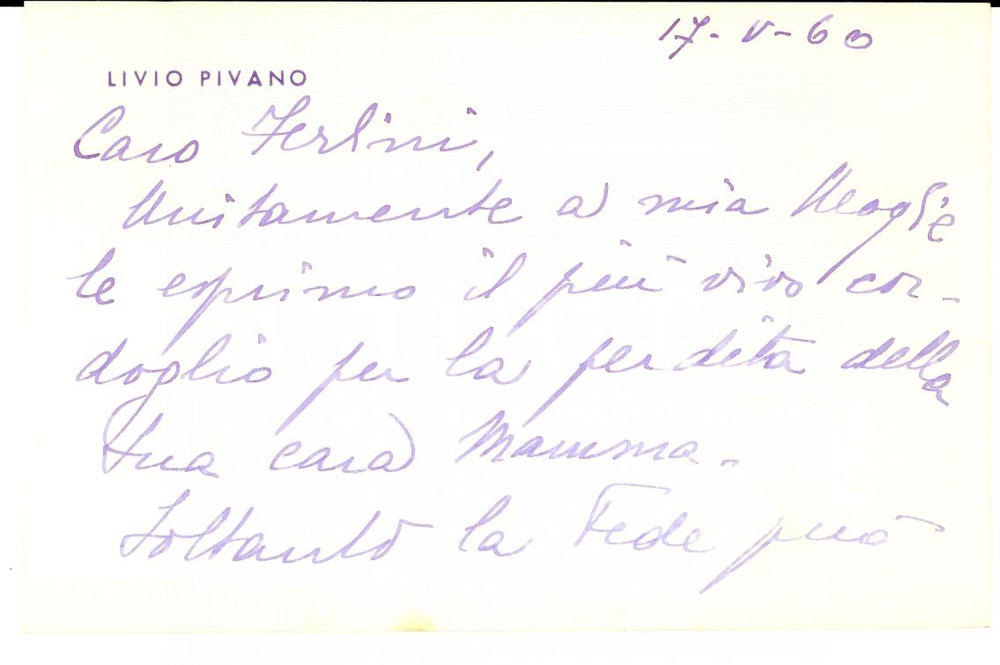 17-V-60
LIVIO PIVANO
Caro Zerbini,
Unitamente a mia Moglie
le esprimo il più vivo cor-
doglio per la perdita della
Sua cara Mamma.
Soltanto la Fede può